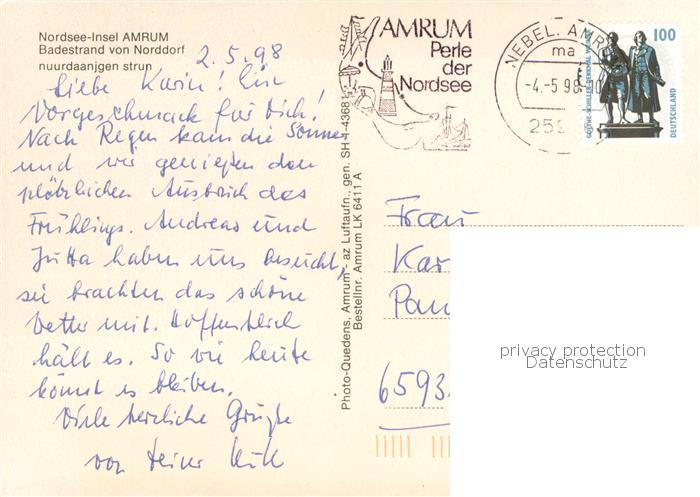 Nordsee-Insel AMRUM
Badestrand von Norddorf
nuurdaanjgen strun
2.5.98
Liebe Karin! Ein
Vorgeschmack für Dich!
Nach Regen kam die Sonne
und wir genießen den
plötzlichen Ausbruch des
Frühlings. Andreas und
Jutta haben uns besucht,
sie brachten das schöne
Wetter mit. Hoffentlich
hält es. So wie heute
könnt es bleiben.
Viele herzliche Grüße
von Deiner
Photo-Quedens, Amrum - az Luftaufn., gen. SH-1-43681
Bestellnr. Amrum LK 6411 A
AMRUM
Perle
der
Nordsee
NEBEL, AMR
ma
-4.-5.98
252
100
DEUTSCHLAND
GOETHE-SCHILLER-DENKMAL WEIMAR
Frau
Kar
6593
privacy protection
Datenschutz